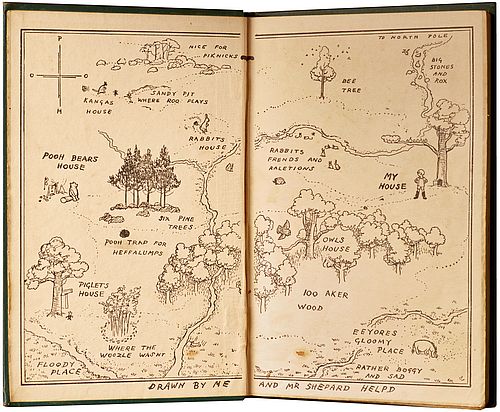 P
O
O
M
NICE FOR
PIKNICKS
KANGAS
HOUSE
SANDY PIT
WHERE ROO PLAYS
RABBITS
HOUSE
POOH BEARS
HOUSE
SIX PINE
TREES
POOH TRAP FOR
HEFFALUMPS
PIGLETS
HOUSE
WHERE THE
WOOZLE WASNT
FLOODY
PLACE
TO NORTH POLE
BIG
STONES
AND
ROX
BEE
TREE
RABBITS
FRENDS AND
RALETIONS
MY
HOUSE
OWLS
HOUSE
100 AKER
WOOD
EEYORES
GLOOMY
PLACE
RATHER BOGGY
AND SAD
DRAWN BY ME AND MR SHEPARD HELPD